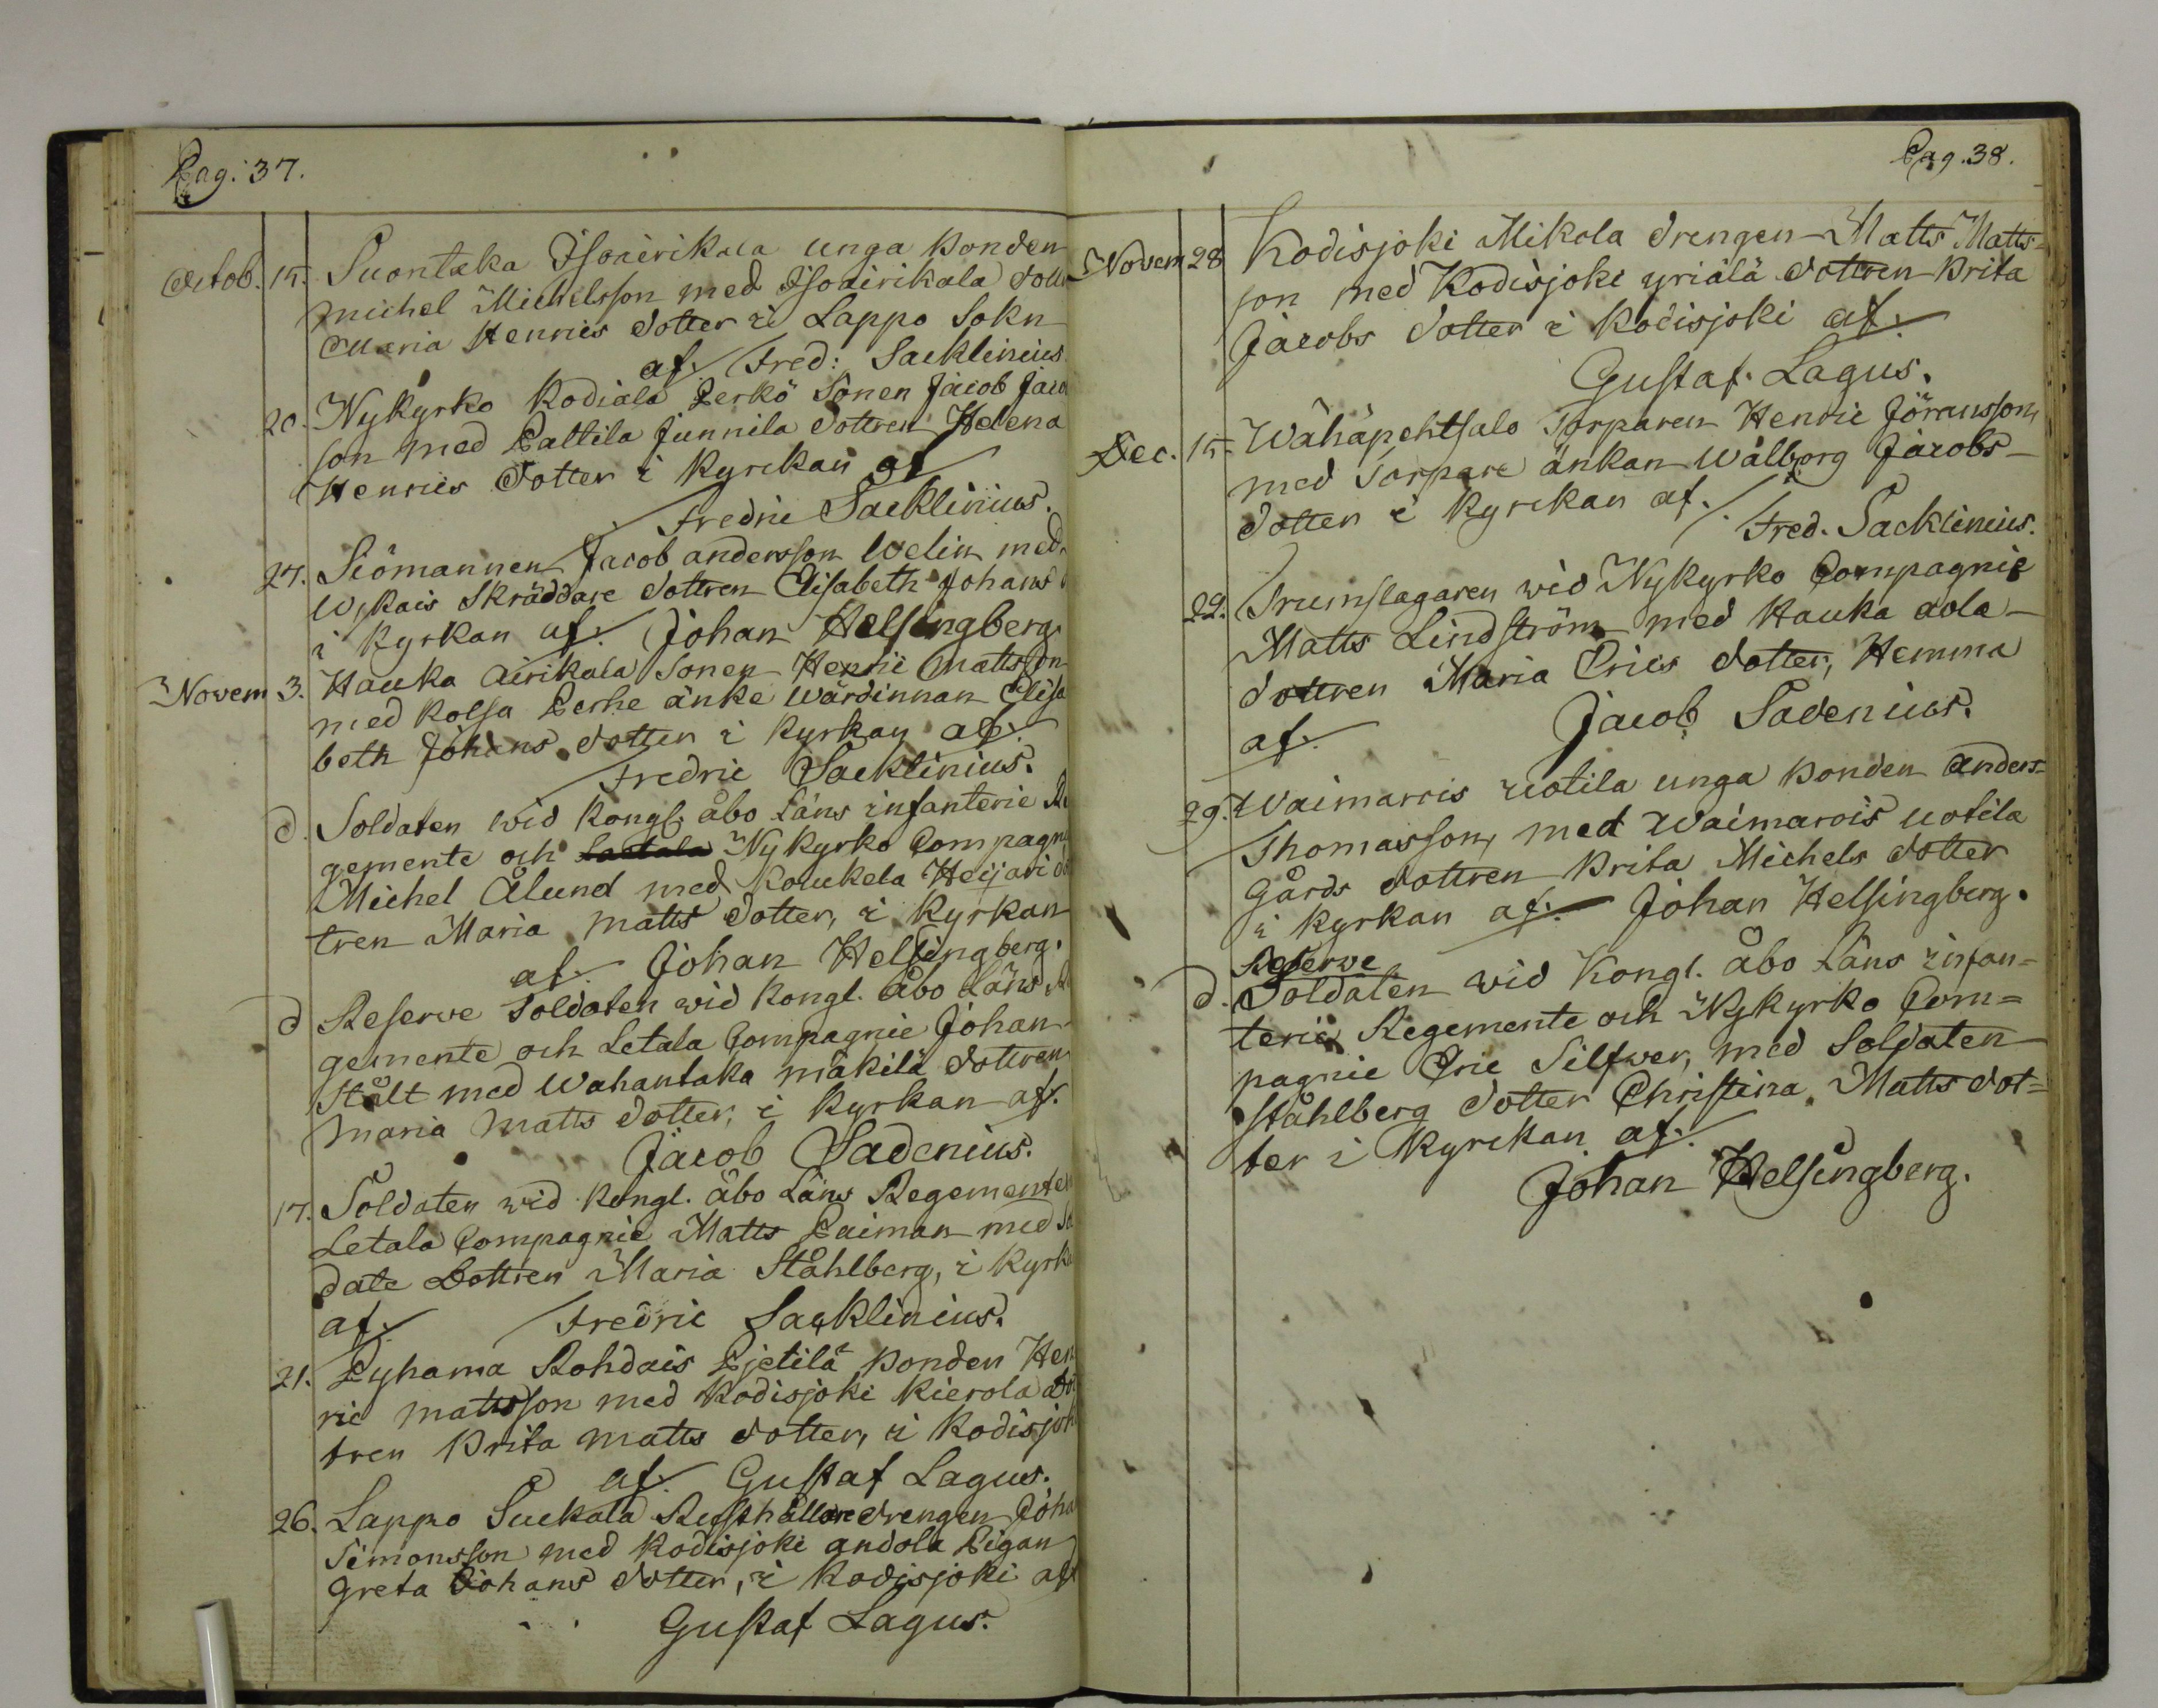 Pag. 37.
Octob. 15. Suontaka Isoairikala unga bonden
Michel Michelsson med Isoairikala dott
Maria Henrics dotter i Lappo Sokn
af. Fred: Sacklinius
20. Nykyrko Kodiala Perkö Sonen Jacob Jaco
son med Pattila Junnila dottren Helena
Henrics dotter i Kyrckan af
Fredric Sacklinius.
27. Siömannen Jacob andersson Welin med
Wykais Skräddare dottren Elisabeth Johans d
i Kyrkan af. Johan Helsingberg.
Novem 3. Hauka Airikala Sonen Henric Mattsson
med Kolsa Perhe änke wärdinnan Elisa
beth Johans dotter i Kyrkan af.
Fredric Sacklinius.
d. Soldaten wid Kongl. åbo Läns infanterie Re
gemente och Nykyrko Compagni
Michel Ålund med Koukela Heijari do
tren Maria Matts dotter, i Kyrkan
af. Johan Helsingberg.
d Reserve Soldaten wid Kongl. Åbo Läns Re
gemente och Letala Compagnie Johan
Stålt med Wahantaka mäkilä dottren
Maria Matts dotter, i Kyrkan af.
Jacob Sadenius.
17. Soldaten wid Kongl. åbo Läns Regemente
Letala Compagnie Matts Paiman med Sol
date Dottren Maria Ståhlberg, i Kyrka
af. Fredric Sacklinius.
21. Pyhama Rohdais Pjetilä bonden Hen
ric mattsson med Kodisjoki Kierola dot
tren Brita Matts dotter, i Kodisjoki
af. Gustaf Lagus.
26. Lappo Suckala Rusthållare drengen Joha
Simonsson med Kodisjoki andola Pigan
Greta Johans dotter, i Kodisjoki af
Gustaf Lagus.
Pag. 38.
Novem 28 Kodisjoki Mikola drengen Matts Matts=
son med Kodisjoki yriälä dottren Brita
Jacobs dotter i Kodisjoki af.
Gustaf Lagus.
Dec. 15. Wähäpehtsalo Torparen Henric Jöransson
med Torpare änkan Wålborg Jacobs
dotter i Kyrckan af.
Fred. Sacklinius.
29. Trumslagaren wid Nykyrko Compagnie
Matts Lindström med Hauka aola
dottren Maria Erics dotter, Hemma
af. Jacob Sadenius.
29. Waimarois uotila unga bonden Anders=
Thomasson, med Waimarois uotila
Gårds dottren Brita Michels dotter
i Kyrkan af. Johan Helsingberg.
Reserve
d. Soldaten wid Kongl. Åbo Läns infan=
terie Regemente och Nykyrko Com=
pagnie Eric Silfwer, med Soldaten
Ståhlberg dotter Christina Matts dot=
ter i Kyrckan af.
Johan Helsingberg.